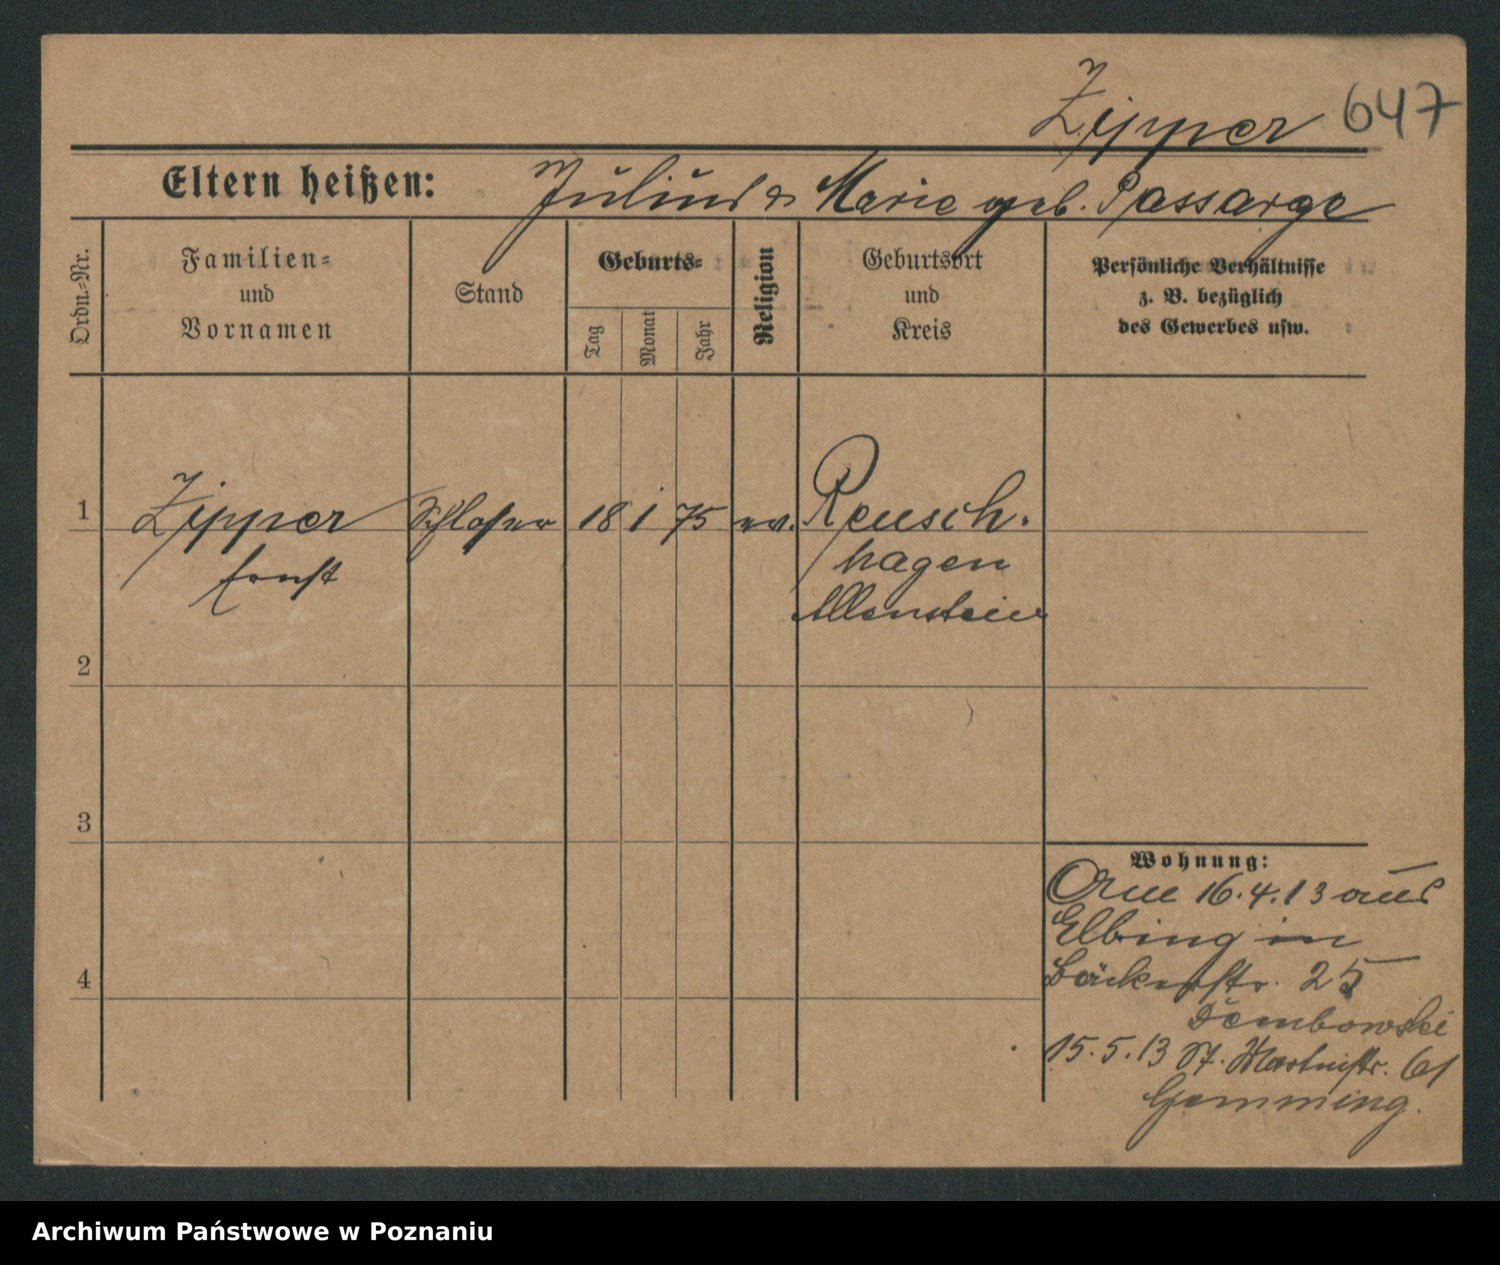 Zipper 647
Eltern heißen: Julius & Marie geb. Passarge
Ordn.-Nr.
Familien-
und
Vornamen
Stand
Geburts-
Tag
Monat
Jahr
Religion
Geburtsort
und
Kreis
Persönliche Verhältnisse
z. B. bezüglich
des Gewerbes usw.
1 Zipper Schlosser 18 1 75 ev. Reusch.
Ernst hagen
Allenstein
2
3
4
Wohnung:
Am 16.4.13 aus
Elbing in
Bäckerstr. 25
Dembowski
15.5.13 St. Martinstr. 61
Gemming.
Archiwum Państwowe w Poznaniu